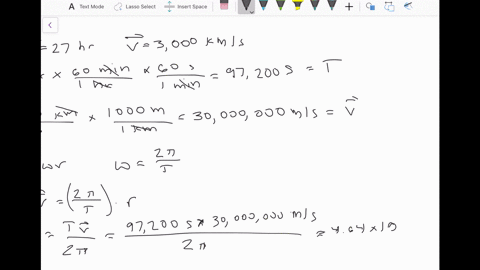 A Text Mode Lasso Select Insert Space
= 27 hr V⃗ = 3,000 km/s
x × 60 min / 1 hr × 60 s / 1 min = 97,200 s = T
km × 1000 m / 1 km = 30,000,000 m/s = V⃗
wr ω = 2π / T
V⃗ = (2π / T) · r
= T V⃗ / 2π = 97,200 s * 30,000,000 m/s / 2π = 4.64 × 10